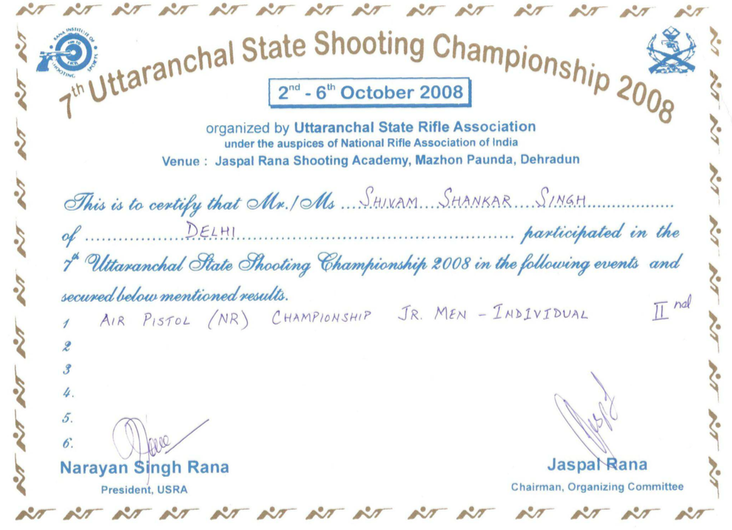 7th Uttaranchal State Shooting Championship 2008
2nd - 6th October 2008
organized by Uttaranchal State Rifle Association
under the auspices of National Rifle Association of India
Venue : Jaspal Rana Shooting Academy, Mazhon Paunda, Dehradun
This is to certify that Mr./Ms ....SHIVAM....SHANKAR....SINGH....................
of ....................DELHI........................................................ participated in the
7th Uttaranchal State Shooting Championship 2008 in the following events and
secured below mentioned results.
1 AIR PISTOL (NR) CHAMPIONSHIP JR. MEN - INDIVIDUAL II nd
2
3
4.
5.
6.
Narayan Singh Rana
President, USRA
Jaspal Rana
Chairman, Organizing Committee